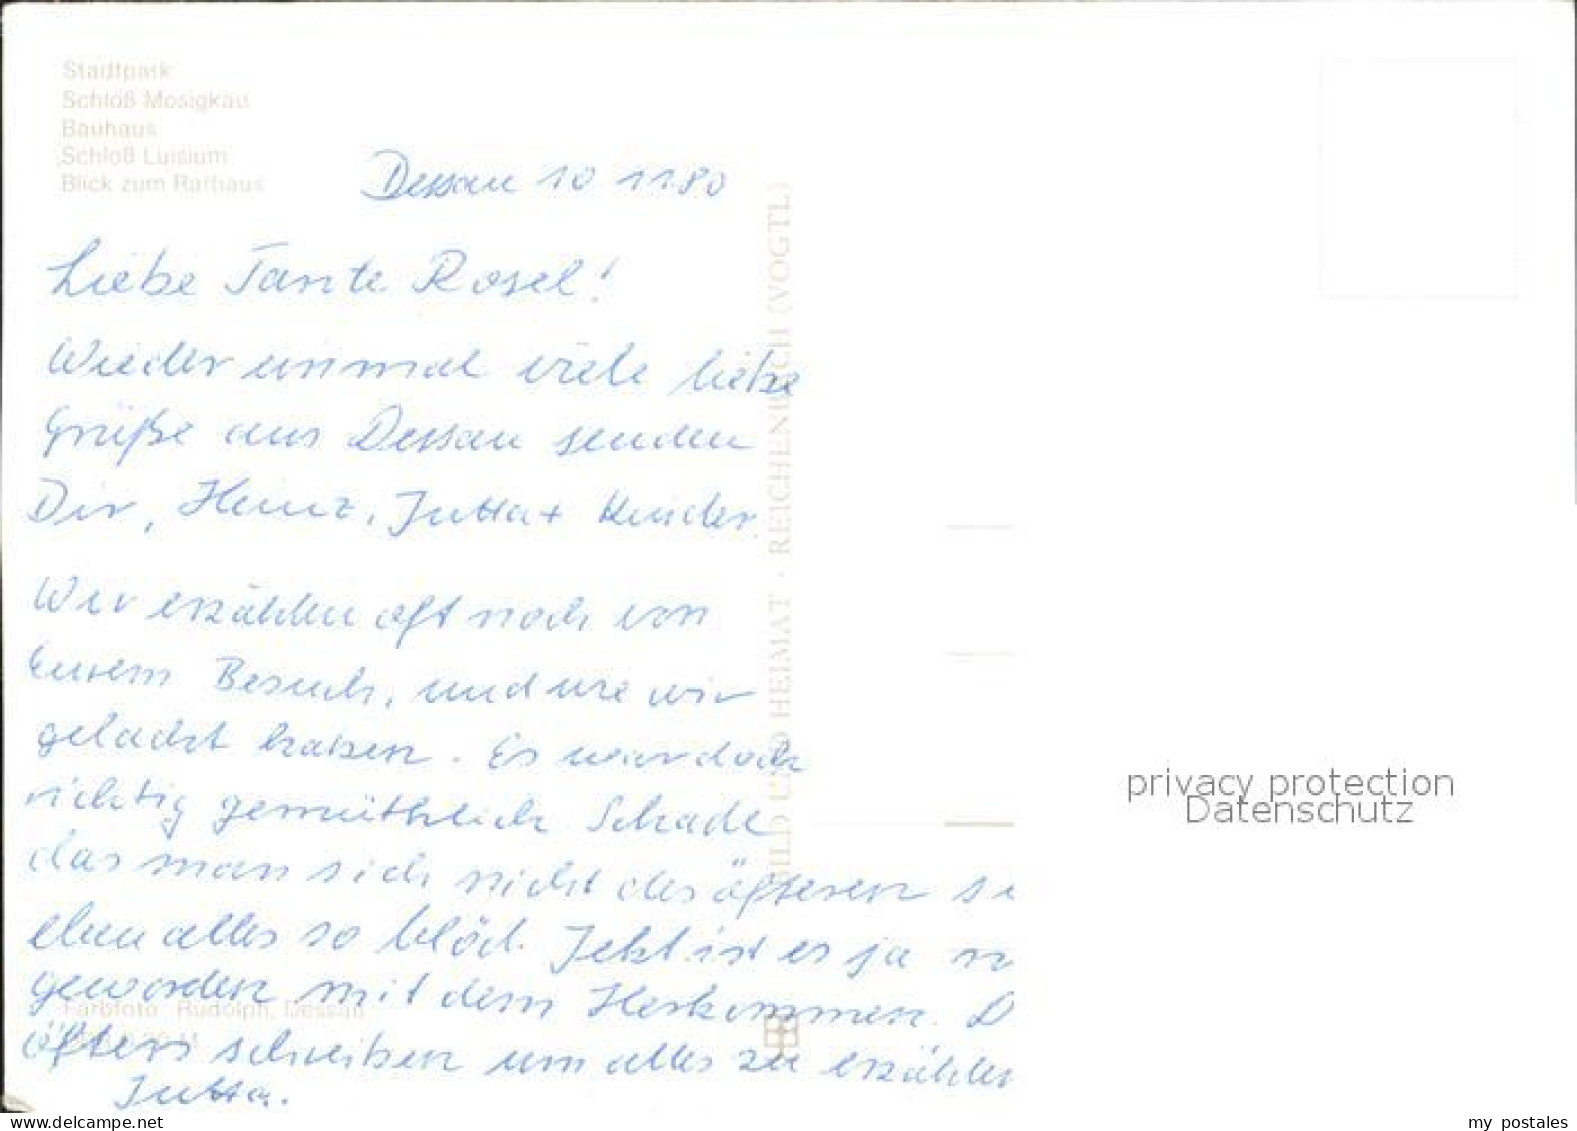 Stadtpark
Schloß Mosigkau
Bauhaus
Schloß Luisium
Blick zum Rathaus
Dessau 10 11.80
Liebe Tante Rosel!
Wieder einmal viele liebe
Grüße aus Dessau senden
Dir, Heinz, Jutta + Kinder
Wir erzählen oft noch von
Eurem Besuch, und wie wir
gelacht haben. Es war doch
richtig gemüthlich. Schade
das man sich nicht des öfteren
eben alles so blöd. Jetzt ist es ja
geworden mit dem Herkommen. D
öfters schreiben um alles zu erzählen
Jutta.
BILD UND HEIMAT · REICHENBACH (VOGTL)
Farbfoto Rudolph, Dessau
privacy protection
Datenschutz
my postales